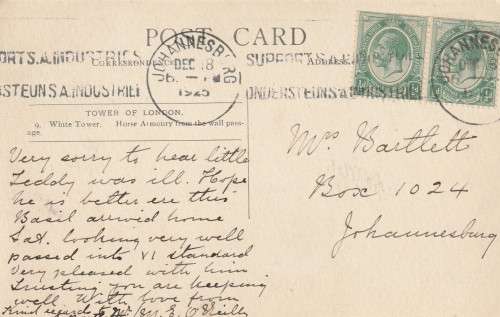 POST CARD
CORRESPONDENCE
ADDRESS
JOHANNESBURG
DEC 18
1925
SUPPORT S.A. INDUSTRIES
ONDERSTEUN S.A. INDUSTRIE
PORT S.A. INDUSTRIES
RSTEUN S.A. INDUSTRIE
JOHANNESBURG
TOWER OF LONDON.
9. White Tower. Horse Armoury from the wall pass-
age.
Very sorry to hear little
Teddy was ill. Hope
he is better ere this
Basil arrived home
Sat. looking very well
passed into VI standard
Very pleased with him
Trusting you are keeping
well. With love from
Kind regards to Mr. M. E. O'Reilly
Mrs Bartlett
Box 1024
Johannesburg